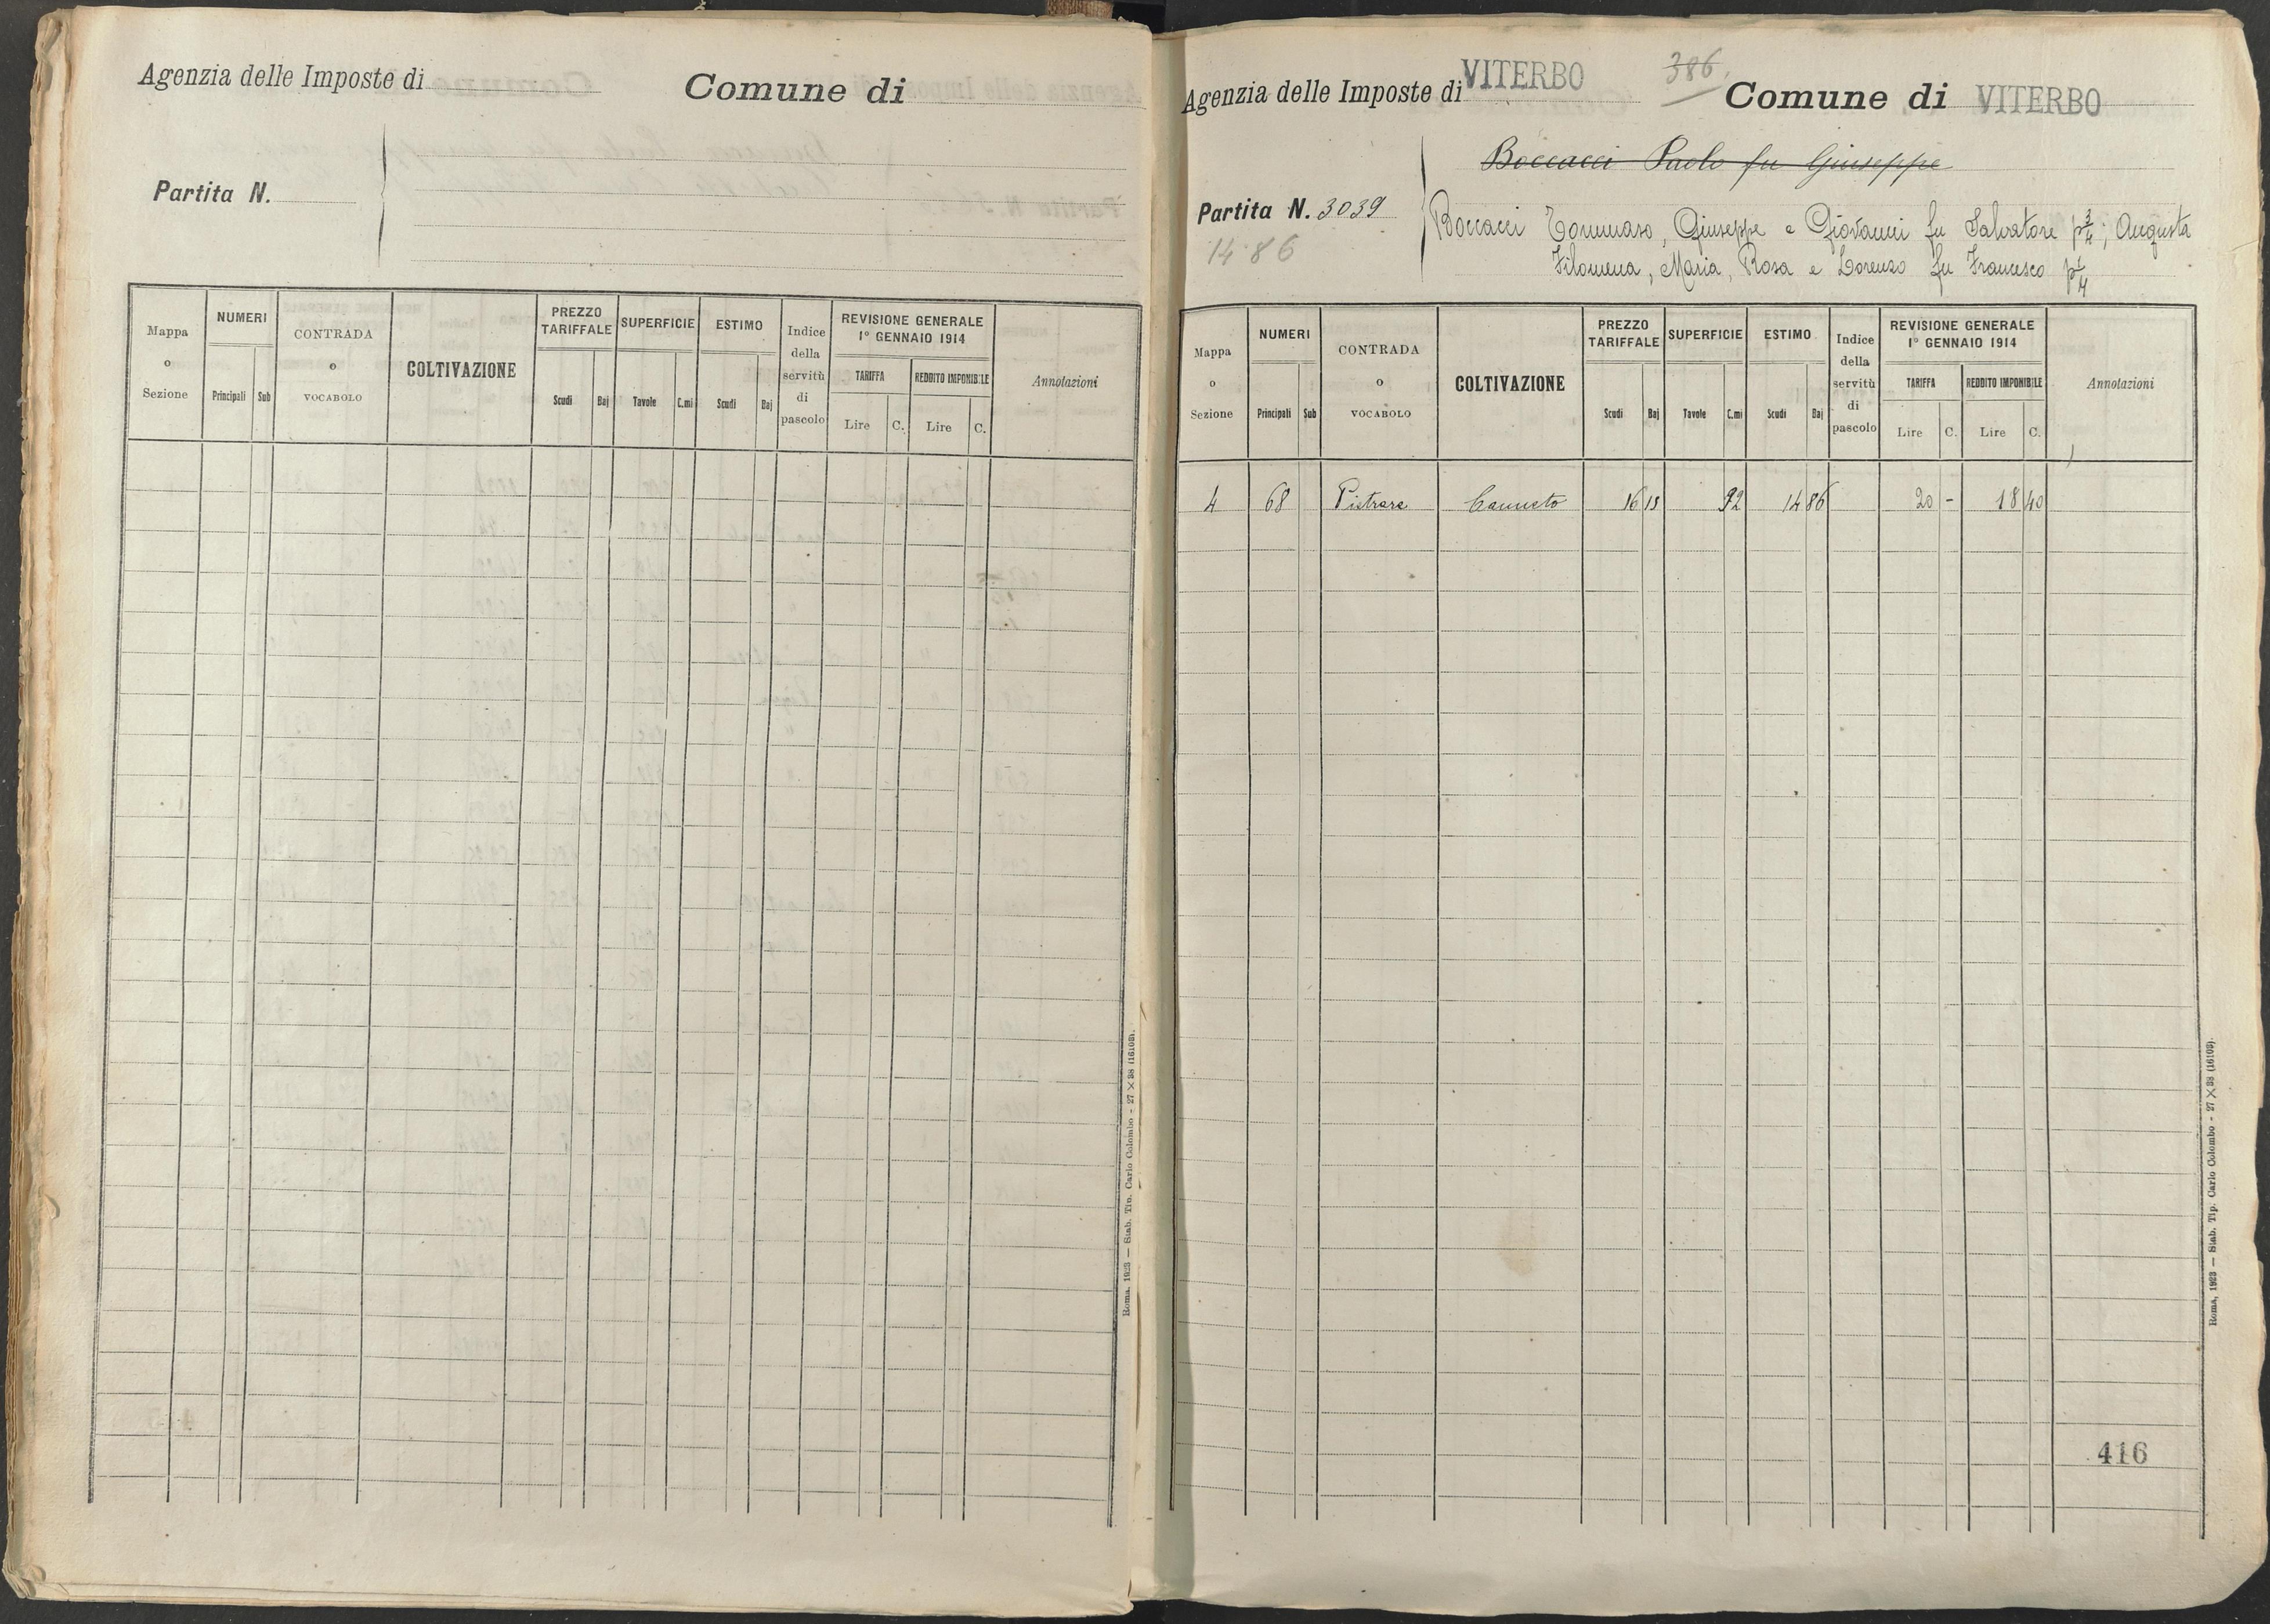 Agenzia delle Imposte di
Comune di
Partita N.
Mappa o Sezione
NUMERI
Principali Sub
CONTRADA o VOCABOLO
COLTIVAZIONE
PREZZO TARIFFALE
Scudi Baj
SUPERFICIE
Tavole C.mi
ESTIMO
Scudi Baj
Indice della servitù di pascolo
REVISIONE GENERALE
1º GENNAIO 1914
TARIFFA
Lire C.
REDDITO IMPONIBILE
Lire C.
Annotazioni
Roma, 1923 — Stab. Tip. Carlo Colombo - 27 × 38 (16108).
Agenzia delle Imposte di VITERBO
386
Comune di VITERBO
Boccacci Paolo fu Giuseppe
Partita N. 3039
Boccacci Tommaso, Giuseppe e Giovanni fu Salvatore p 3/4; Augusta
1486
Filomena, Maria, Rosa e Lorenzo fu Francesco p 1/4
Mappa o Sezione
NUMERI
Principali Sub
CONTRADA o VOCABOLO
COLTIVAZIONE
PREZZO TARIFFALE
Scudi Baj
SUPERFICIE
Tavole C.mi
ESTIMO
Scudi Baj
Indice della servitù di pascolo
REVISIONE GENERALE
1º GENNAIO 1914
TARIFFA
Lire C.
REDDITO IMPONIBILE
Lire C.
Annotazioni
4 68 Pistrare Canneto 16 15 92 14 86 20 - 18 40
Roma, 1923 — Stab. Tip. Carlo Colombo - 27 × 38 (16108).
416